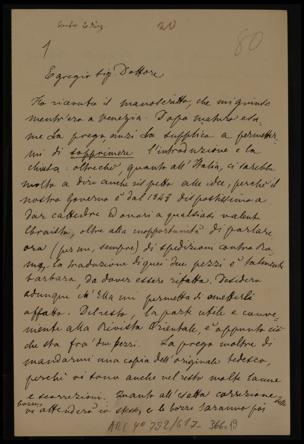 20
80
1
Egregio Sig. Dottore
Ho ricevuto il manoscritto, che mi giunse
mentr'ero a Venezia. Dopo maturo esa-
me La prego, anzi La supplico a permetter-
mi di sopprimere l'introduzione e la
chiusa: oltrechè, quanto all'Italia, ci sarebbe
molto a dire anche rispetto alle idee, perchè il
nostro Governo è dal 1848 dispostissimo a
dar cattedre ed onori a qualsiasi valente
Ebraista, oltre alla inopportunità di parlare
ora (per me, sempre) di spedizioni contro Ro-
ma, la traduzione di quei due pezzi è talmente
barbara, da dover essere rifatta. Desidero
adunque ch'Ella mi permetta di ometterli
affatto. Del resto, la parte utile e conve-
niente alla Rivista Orientale, è appunto ciò
che sta fra i due pezzi. La prego inoltre di
mandarmi una copia dell'originale tedesco,
perchè vi sono anche nel resto molte lacune
e scorrezioni. Quanto all'esatta correzione delle
bozze, vi attenderò io stesso, e le bozze saranno poi
ARC. 4° 792/G17-
366.19